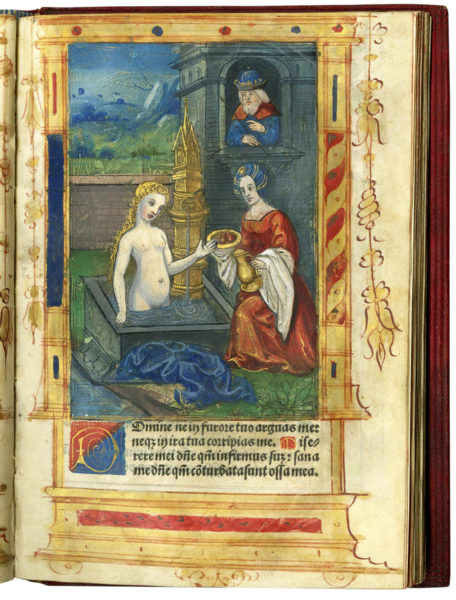 Domine ne in furore tuo arguas me:
neqz in ira tua corripias me. Mise-
rere mei dñe qm̃ infirmus suz: sana
me dñe qm̃ cõturbata sunt ossa mea.